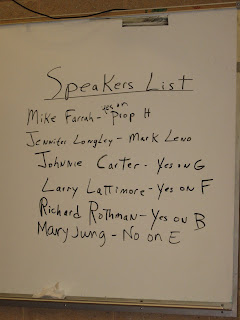 Speakers List
Mike Farrah - yes on Prop H
Jennifer Longley - Mark Leno
Johnnie Carter - Yes on G
Larry Lattimore - Yes on F
Richard Rothman - Yes on B
Mary Jung - No on E